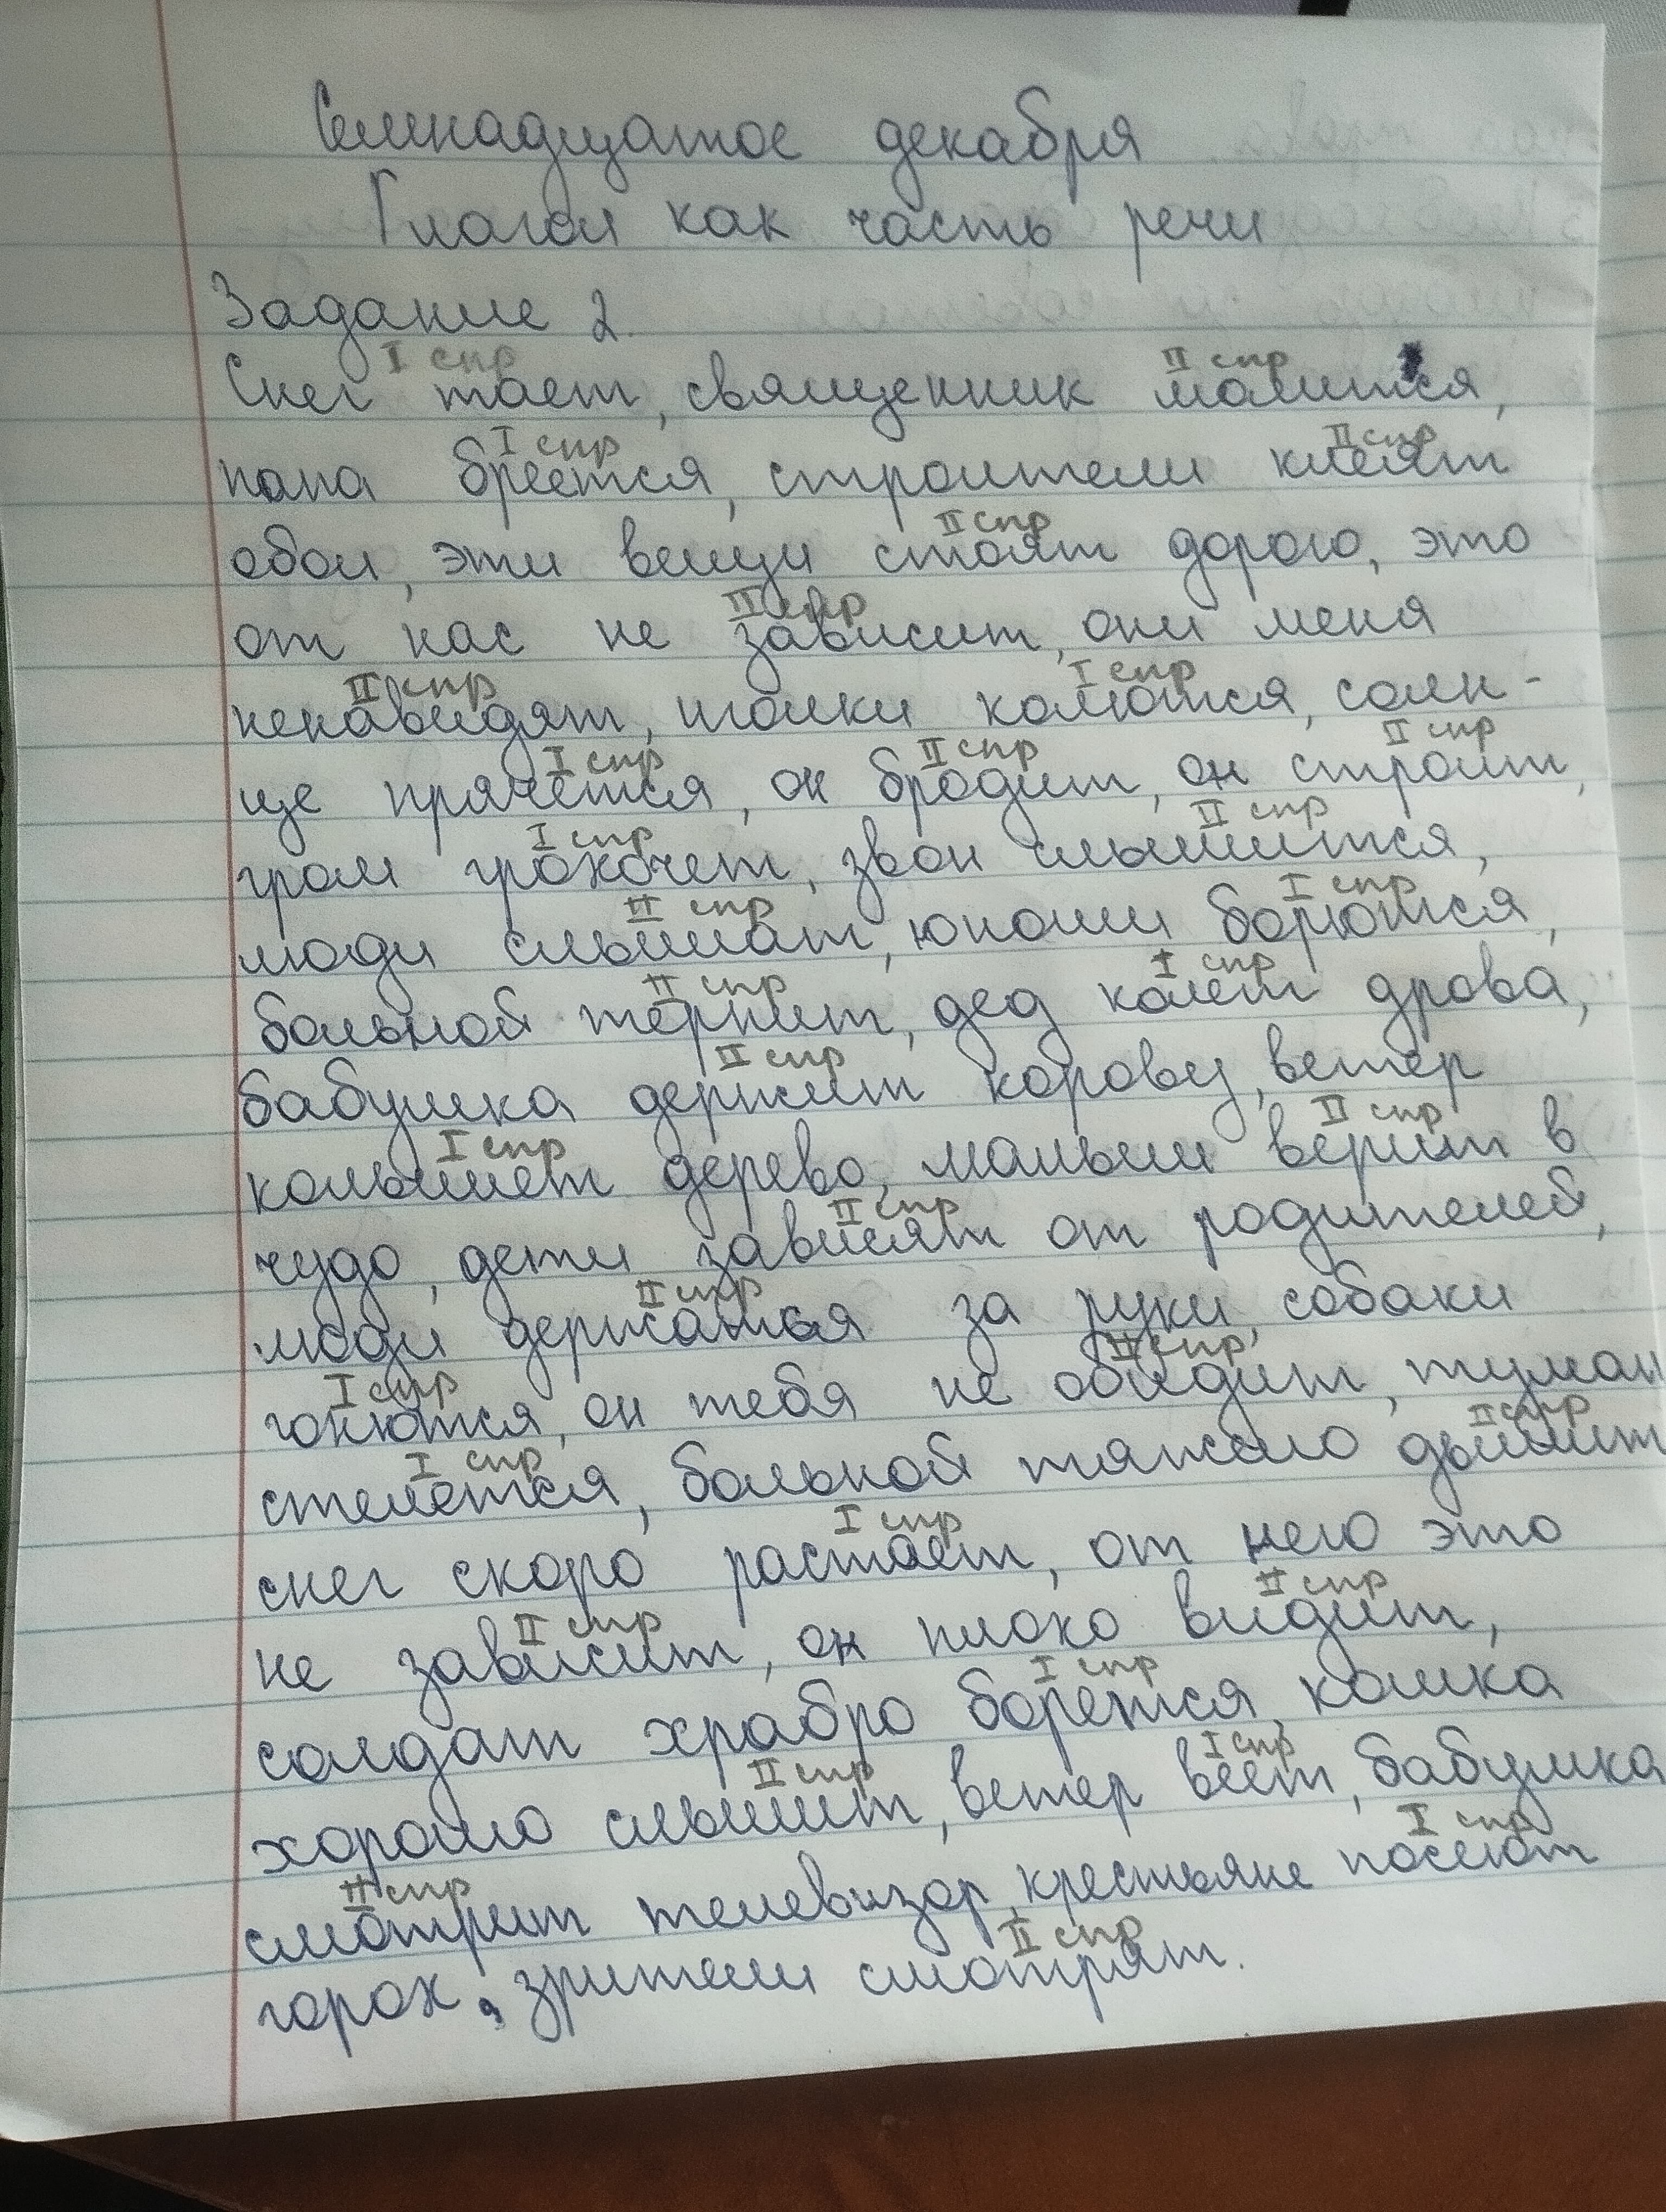 Семнадцатое декабря
Глагол как часть речи
Задание 2.
I спр II спр
Снег тает, священник молится,
I спр II спр
папа бреется, строители клеят
II спр
обои, эти вещи стоят дорого, это
II спр
от нас не зависит, они меня
II спр I спр
ненавидят, иголки колются, солн-
I спр II спр II спр
це прячется, он бродит, он строит,
I спр II спр
гром грохочет, звон слышится,
II спр I спр
люди слышат, юноши борются,
II спр I спр
больной терпит, дед колет дрова,
II спр
бабушка держит корову, ветер
I спр II спр
колышет дерево, малыш верит в
II спр
чудо, дети зависят от родителей,
II спр
люди держатся за руки, собаки
I спр II спр
гонятся, он тебя не обидит, туман
I спр II спр
стелется, больной тяжело дышит
I спр
снег скоро растает, от него это
II спр II спр
не зависит, он плохо видит,
I спр
солдат храбро борется, кошка
II спр I спр
хорошо слышит, ветер веет, бабушка
II спр I спр
смотрит телевизор, крестьяне посеют
II спр
горох, зрители смотрят.